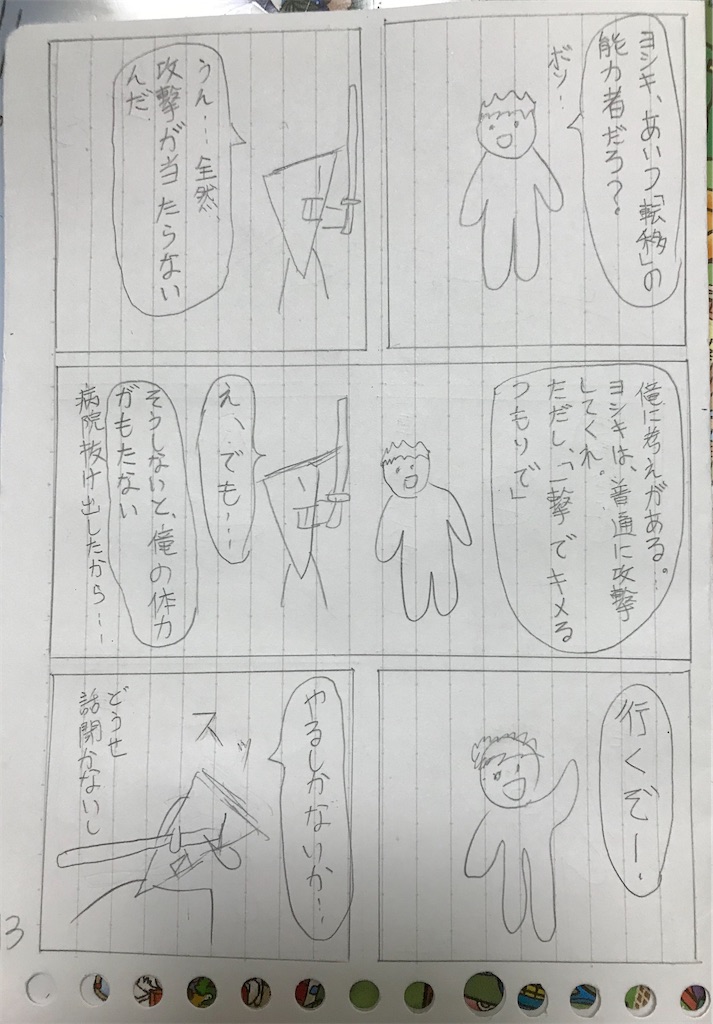 ヨシキ、あいつ「転移」の
能力者だろ?
ボソ…
うん…全然、
攻撃が当たらない
んだ
俺に考えがある。
ヨシキは、普通に攻撃
してくれ。
ただし、「一撃でキメる
つもりで」
え、でも…
そうしないと、俺の体力
がもたない
病院抜け出したから…
行くぞー、
やるしかないか…
スッ
どうせ
話聞かないし
13